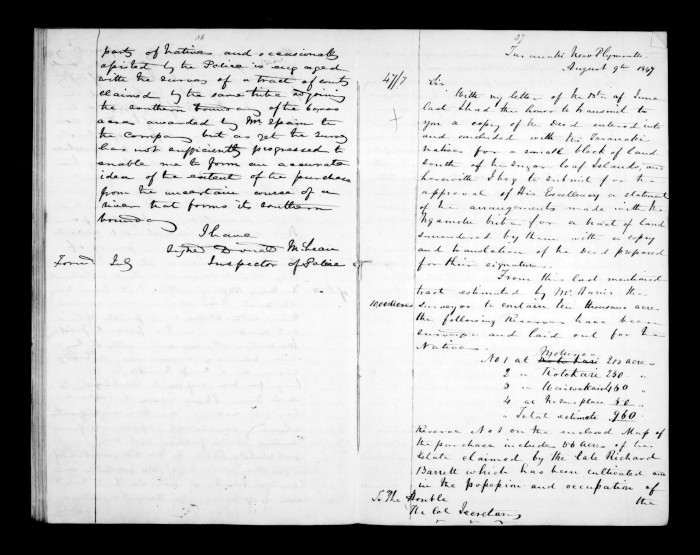 36
party of Natives and occasionally
assisted by the Police is engaged
with the survey of a tract of
claimed by the same tribe adjoining
the southern boundary of the 60,000
acres awarded by Mr Spain to
the Company but as yet the survey
has not sufficiently progressed to
enable me to form an accurate
idea of the extent of the purchase
from the uncertain course of a
river that forms its southern
boundary
I have
Signed Donald McLean
Inspector of Police
37
Taranaki New Plymouth
August 9th 1847
47/7
Sir
With my letter of the of June
last I had the honor to transmit to
you a copy of the Deed entered into
and concluded with the Taranaki
natives for a small block of land
south of the Sugar loaf Islands, and
herewith I beg to submit for the
approval of His Excellency a statement
of the arrangements made with the
Ngamotu tribe for a tract of land
surrendered by them with a copy
and translation of the Deed prepared
for their signature.
From this last mentioned
tract estimated by Mr. the
10,000 acres Surveyor to contain ten thousand acres
the following Reserves have been
surveyed and laid out for the
Natives.
No 1 at 200 acres
2 " 250 "
3 " 460 "
4 at place 50 "
" Total estimate 960
Reserve No 1 on the enclosed Map of
the purchase includes 56 acres of the
Estate claimed by the late Richard
Barrett which has been cultivated and
in the possession and occupation of
To The Honble the
The Col Secretary